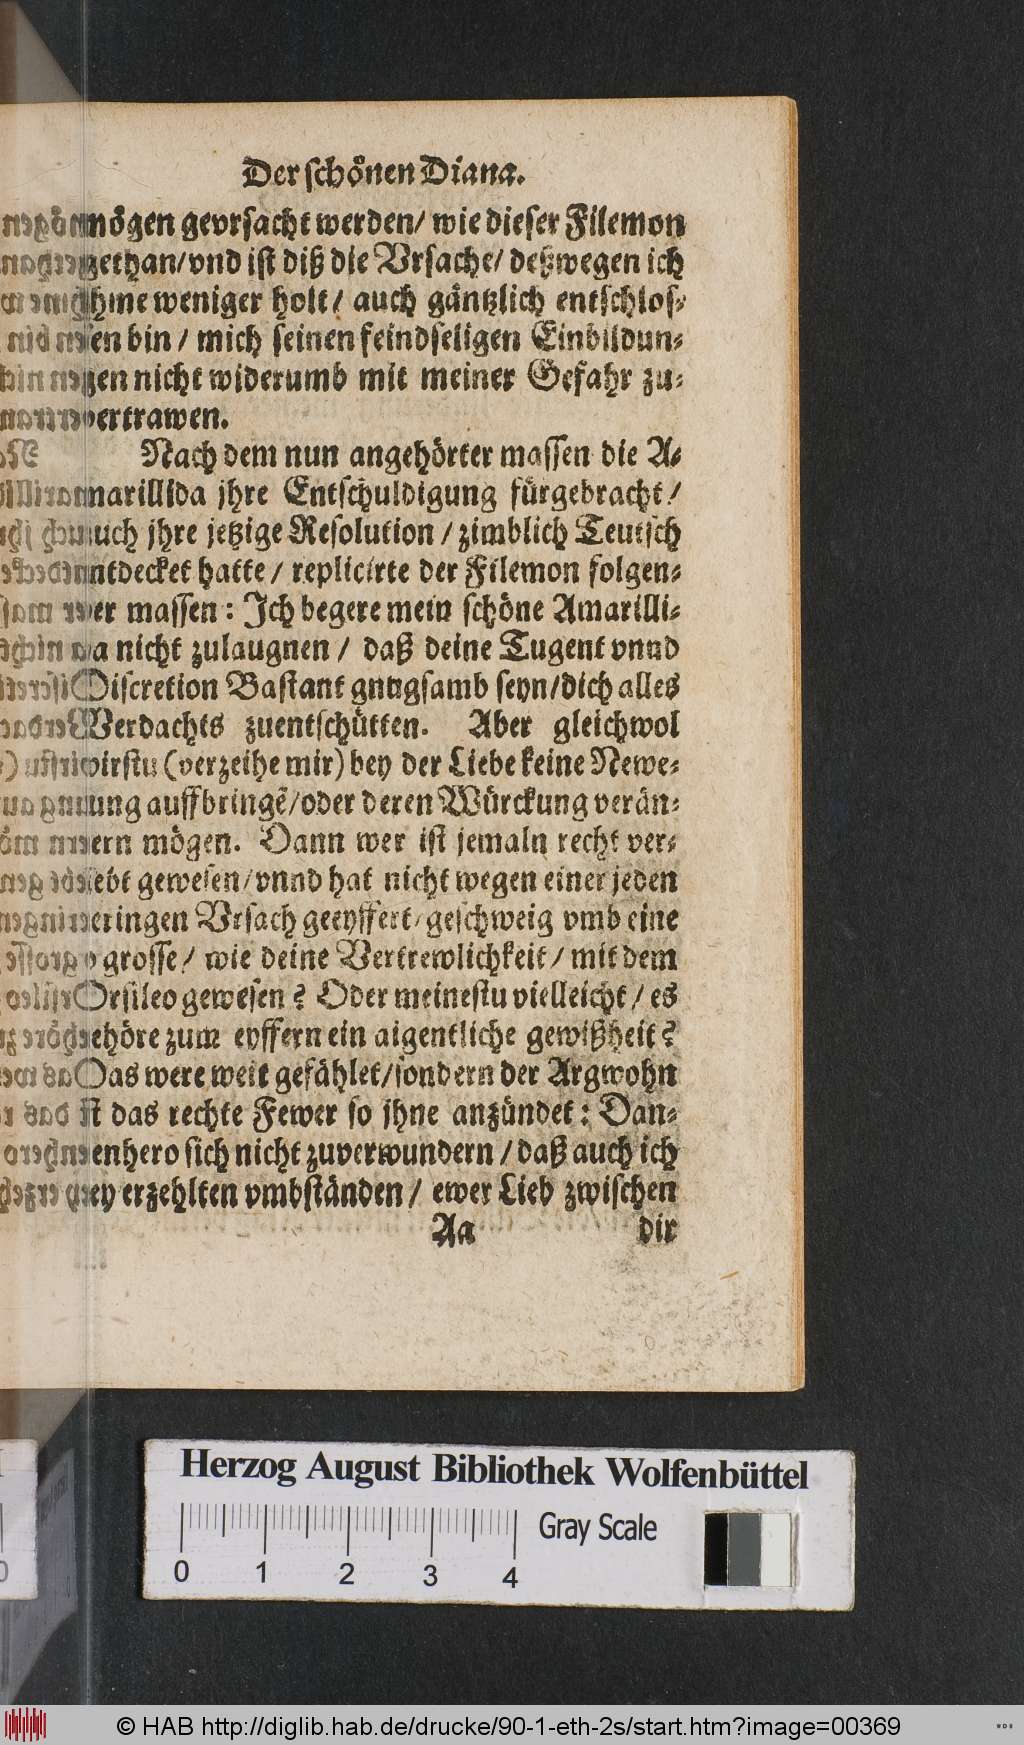 Der schönen Diana.
mögen gevrsacht werden/ wie dieser Filemon
gethan/vnd ist diß die Vrsache/ deßwegen ich
jhme weniger holt/ auch gäntzlich entschlos-
sen bin / mich seinen feindseligen Einbildun-
gen nicht widerumb mit meiner Gefahr zu-
vertrawen.
Nach dem nun angehörter massen die A-
marillida jhre Entschuldigung fürgebracht/
auch jhre jetzige Resolution / zimblich Teutsch
entdecket hatte / replicirte der Filemon folgen-
der massen: Ich begere mein schöne Amarilli-
da nicht zulaugnen / daß deine Tugent vnnd
Discretion Bastant gnugsamb seyn/dich alles
Verdachts zuentschütten. Aber gleichwol
wirstu (verzeihe mir) bey der Liebe keine Newe-
rung auffbringẽ/oder deren Würckung verän-
dern mögen. Dann wer ist jemaln recht ver-
liebt gewesen/vnnd hat nicht wegen einer jeden
geringen Vrsach geeyffert/geschweig vmb eine
so grosse/ wie deine Vertrewlichkeit/ mit dem
Orsileo gewesen? Oder meinestu vielleicht/ es
gehöre zum eyffern ein aigentliche gewißheit?
Das were weit gefählet/sondern der Argwohn
ist das rechte Fewer so jhne anzündet: Dan-
nenhero sich nicht zuverwundern / daß auch ich
bey erzehlten vmbständen / ewer Lieb zwischen
Aa dir
Herzog August Bibliothek Wolfenbüttel
Gray Scale
0 1 2 3 4
© HAB http://diglib.hab.de/drucke/90-1-eth-2s/start.htm?image=00369